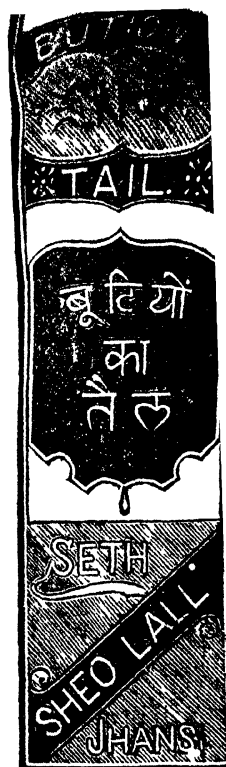 TAIL.
बूटियों
का
तैल
SETH
SHEO LALL
JHANSI